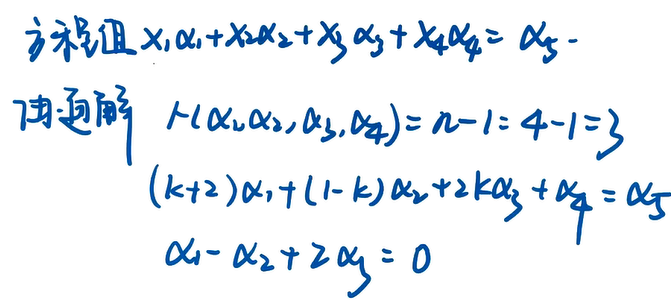 方程组 x₁α₁+x₂α₂+x₃α₃+x₄α₄=α₅.
的通解 r(α₁,α₂,α₃,α₄)=n-1=4-1=3
(k+2)α₁+(1-k)α₂+2kα₃+α₄=α₅
α₁-α₂+2α₃=0